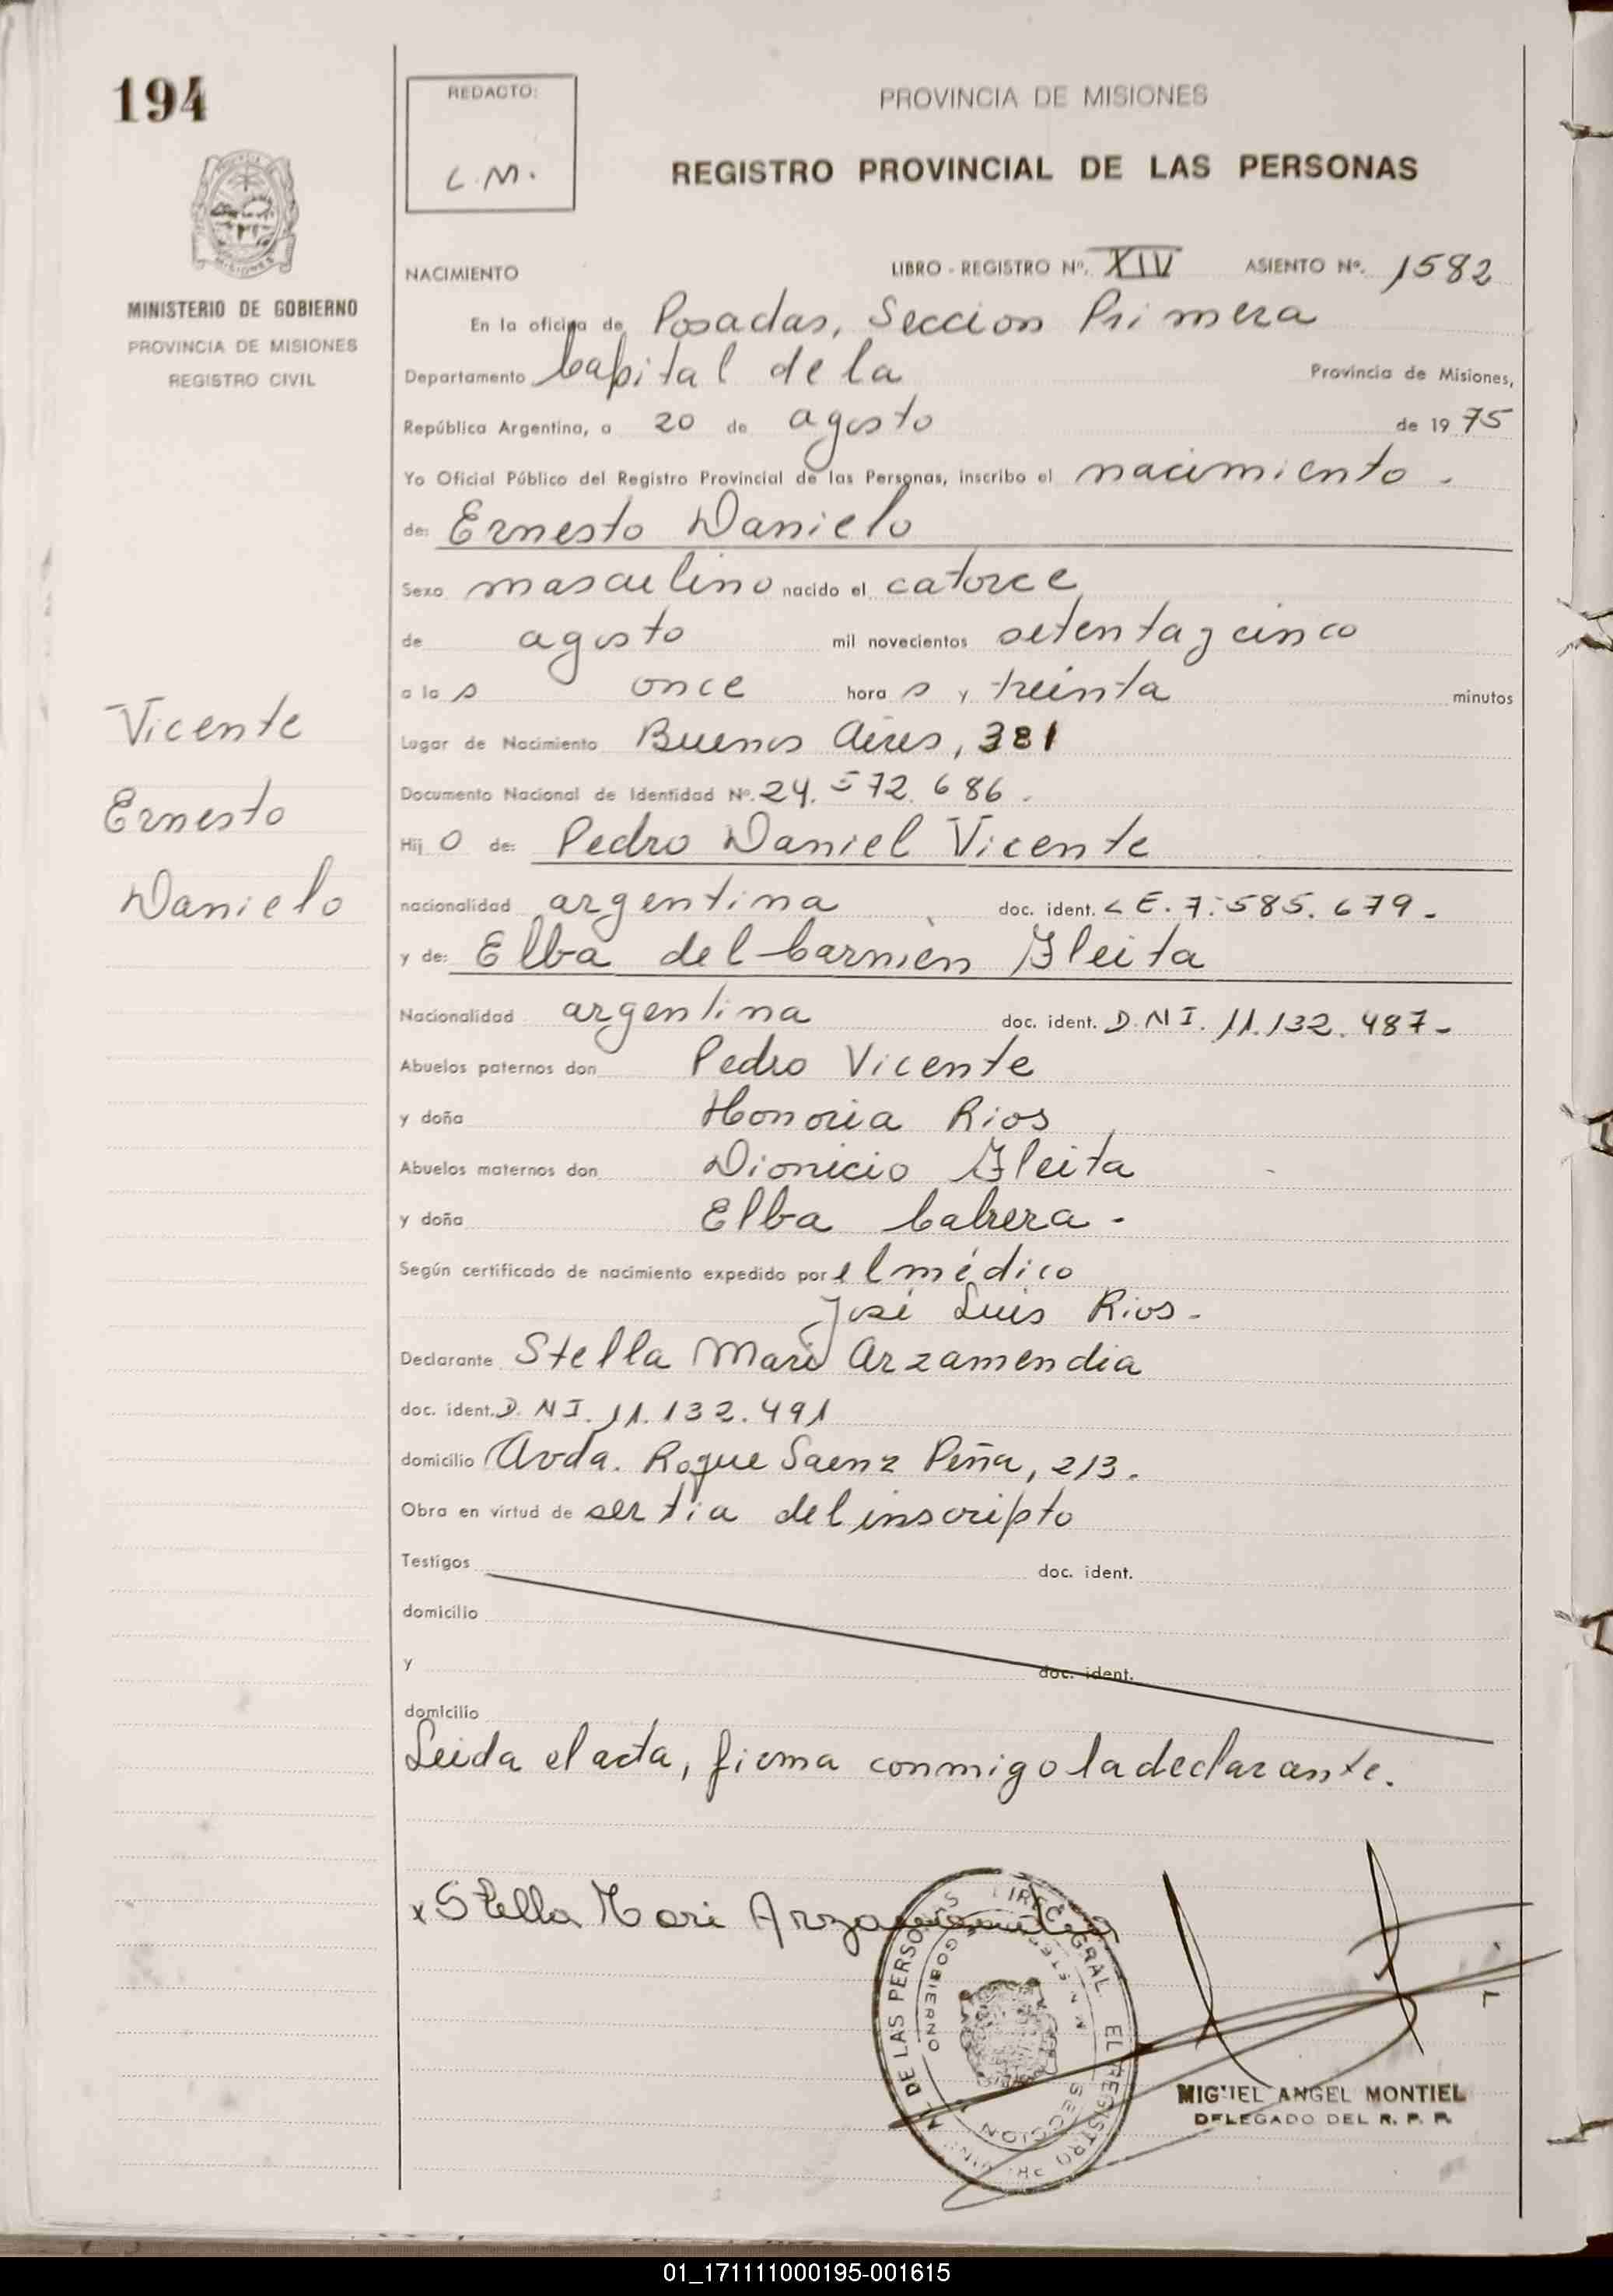 194
REDACTO:
L.M.
PROVINCIA DE MISIONES
REGISTRO PROVINCIAL DE LAS PERSONAS
MINISTERIO DE GOBIERNO
PROVINCIA DE MISIONES
REGISTRO CIVIL
NACIMIENTO
LIBRO - REGISTRO Nº. XIV ASIENTO Nº. 1582
En la oficina de Posadas, Seccion Primera
Departamento Capital de la Provincia de Misiones,
República Argentina, a 20 de agosto de 1975
Yo Oficial Público del Registro Provincial de las Personas, inscribo el nacimiento.
de: Ernesto Danielo
Sexo masculino nacido el catorce
de agosto mil novecientos setenta y cinco
a las once horas y treinta minutos
Lugar de Nacimiento Buenos Aires, 381
Documento Nacional de Identidad Nº. 24.572.686.
Hijo de: Pedro Daniel Vicente
nacionalidad argentina doc. ident. L E. 7.585.679.
y de: Elba del Carmen Fleita
Nacionalidad argentina doc. ident. D.N I. 11.132.487-
Abuelos paternos don Pedro Vicente
y doña Honoria Rios
Abuelos maternos don Dionicio Fleita
y doña Elba Cabrera.
Según certificado de nacimiento expedido por el médico
José Luis Rios.
Declarante Stella Mari Arzamendia
doc. ident. D. N I. 11.132.491
domicilio Avda. Roque Saenz Peña, 213.
Obra en virtud de ser tia del inscripto
Testigos doc. ident.
domicilio
y doc. ident.
domicilio
Leida el acta, firma conmigo la declarante.
Vicente
Ernesto
Danielo
x Stella Mari Arzamendia
DE LAS PERSONAS
GOBIERNO
SECCION
MIGUEL ANGEL MONTIEL
DELEGADO DEL R. P. P.
01_171111000195-001615